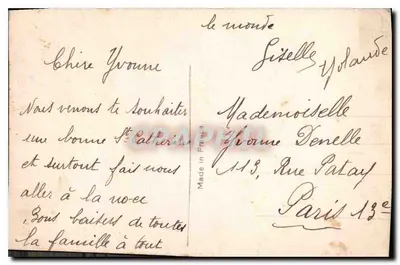 le monde
Giselle
Yolande
Chère Yvonne
Nous venons te souhaiter
une bonne Ste Catherine
et surtout fais nous
aller à la noce
Bons baisers de toutes
la famille à tout
Made in France
Mademoiselle
Yvonne Denelle
113, Rue Patay
Paris 13e